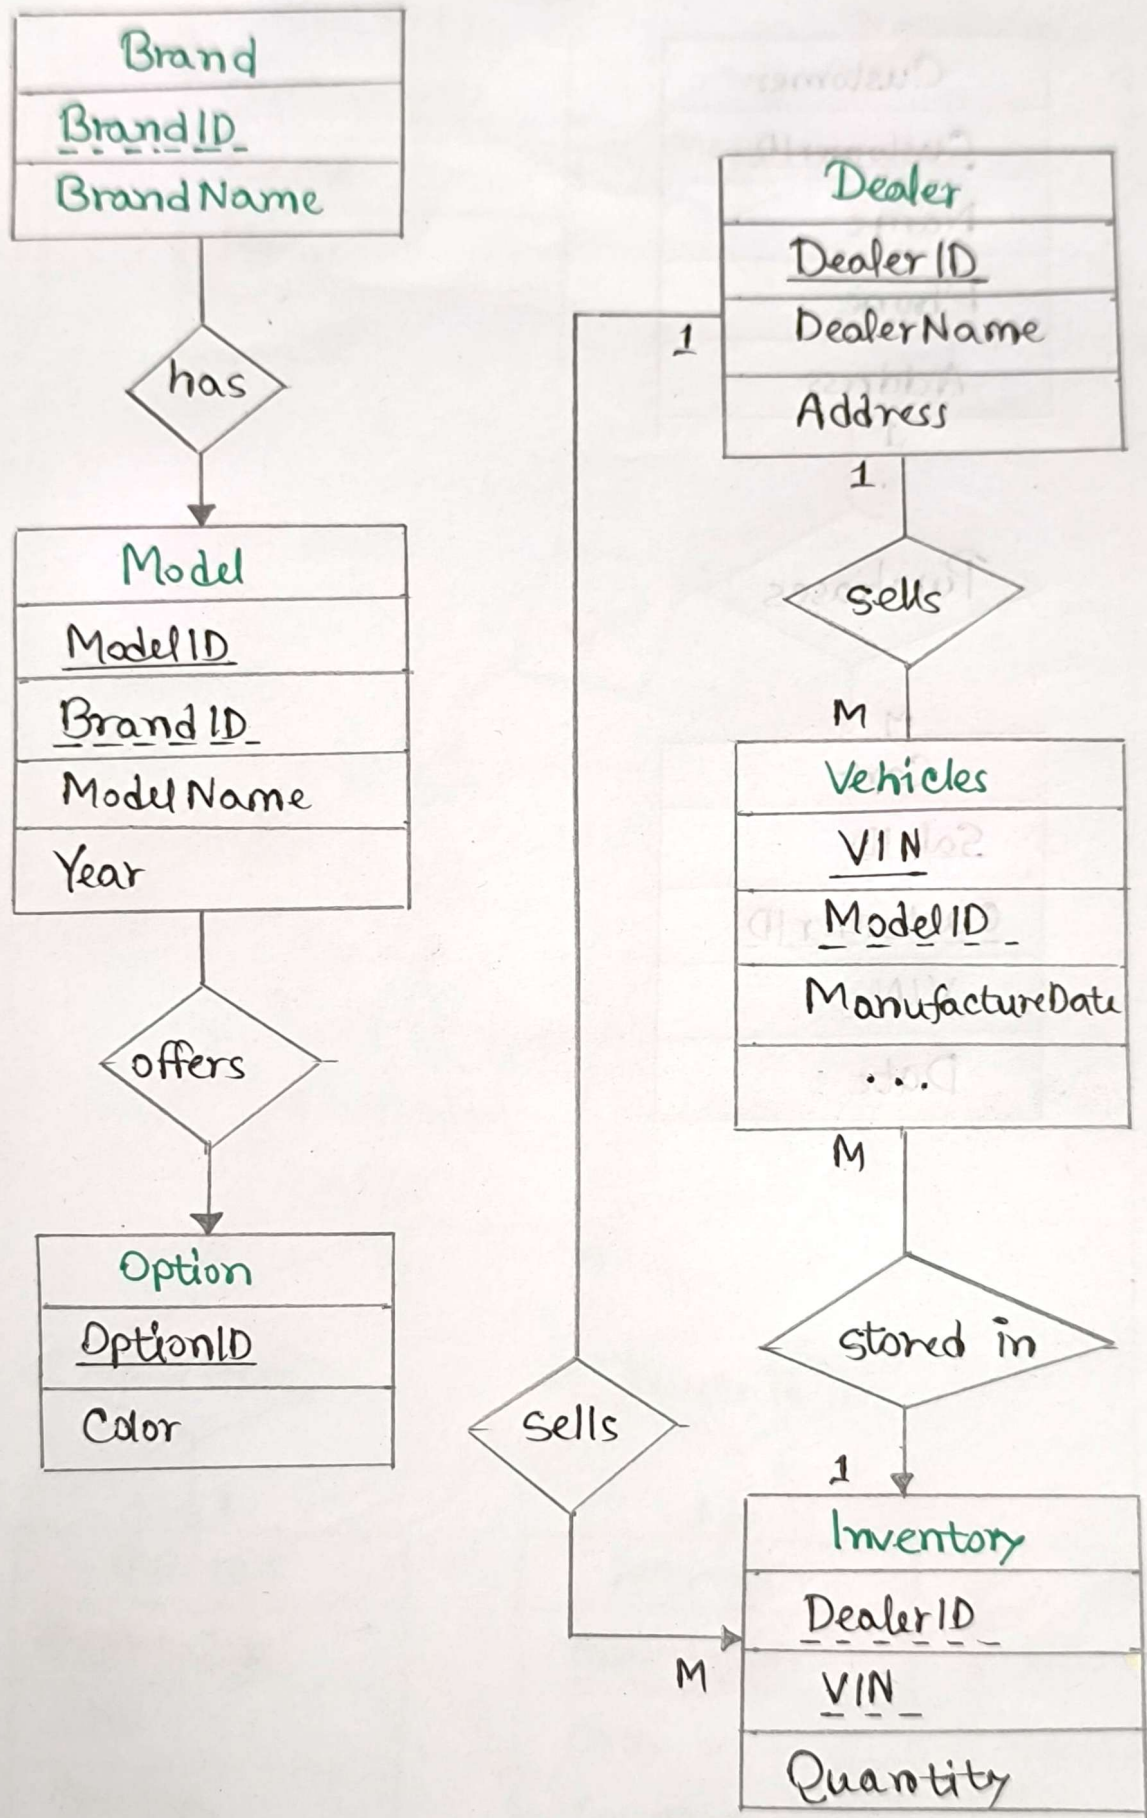 Brand
BrandID
BrandName
has
Model
ModelID
BrandID
ModelName
Year
offers
Option
OptionID
Color
Dealer
DealerID
DealerName
Address
1
1
sells
M
Vehicles
VIN
ModelID
ManufactureDate
...
M
stored in
1
sells
M
Inventory
DealerID
VIN
Quantity